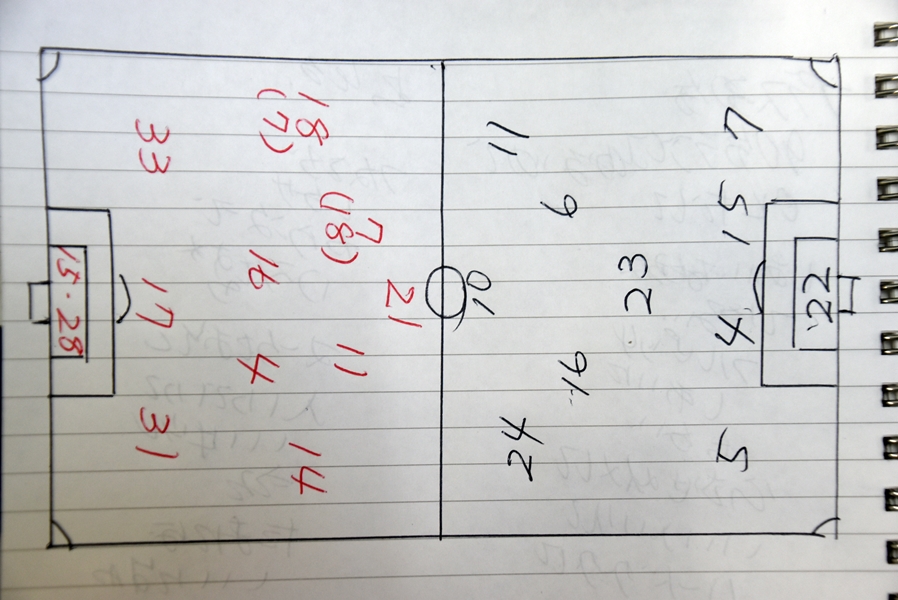 18
(7)
33
7
(18)
16
21
15・28
17
11
4
31
14
7
11
15
6
23
22
10
4
16
24
5